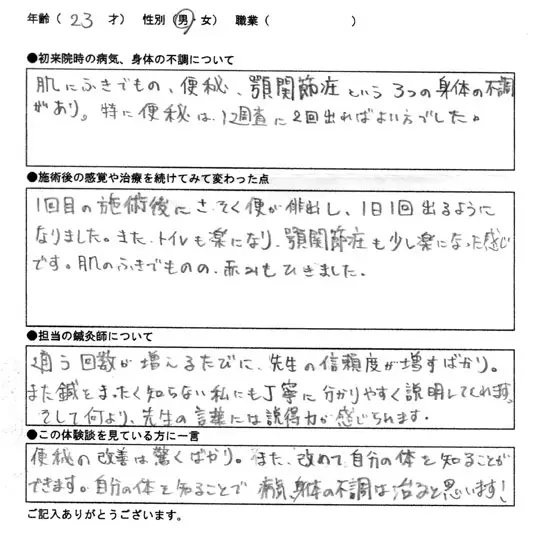 年齢（ 23 才） 性別（男・女） 職業（ ）
●初来院時の病気、身体の不調について
肌にふきでもの、便秘、顎関節症という3つの身体の不調
があり。特に便秘は、1週間に2回出ればよい方でした。
●施術後の感覚や治療を続けてみて変わった点
1回目の施術後にさっそく便が排出し、1日1回出るように
なりました。また、トイレも楽になり、顎関節症も少し楽になった感じ
です。肌のふきでものの、赤みもひきました。
●担当の鍼灸師について
通う回数が増えるたびに、先生の信頼度が増すばかり。
また鍼をまったく知らない私にも丁寧に分かりやすく説明してくれます。
そして何より、先生の言葉には説得力が感じられます。
●この体験談を見ている方に一言
便秘の改善は驚くばかり。また、改めて自分の体を知ることが
できます。自分の体を知ることで病気、身体の不調は治ると思います！
ご記入ありがとうございます。